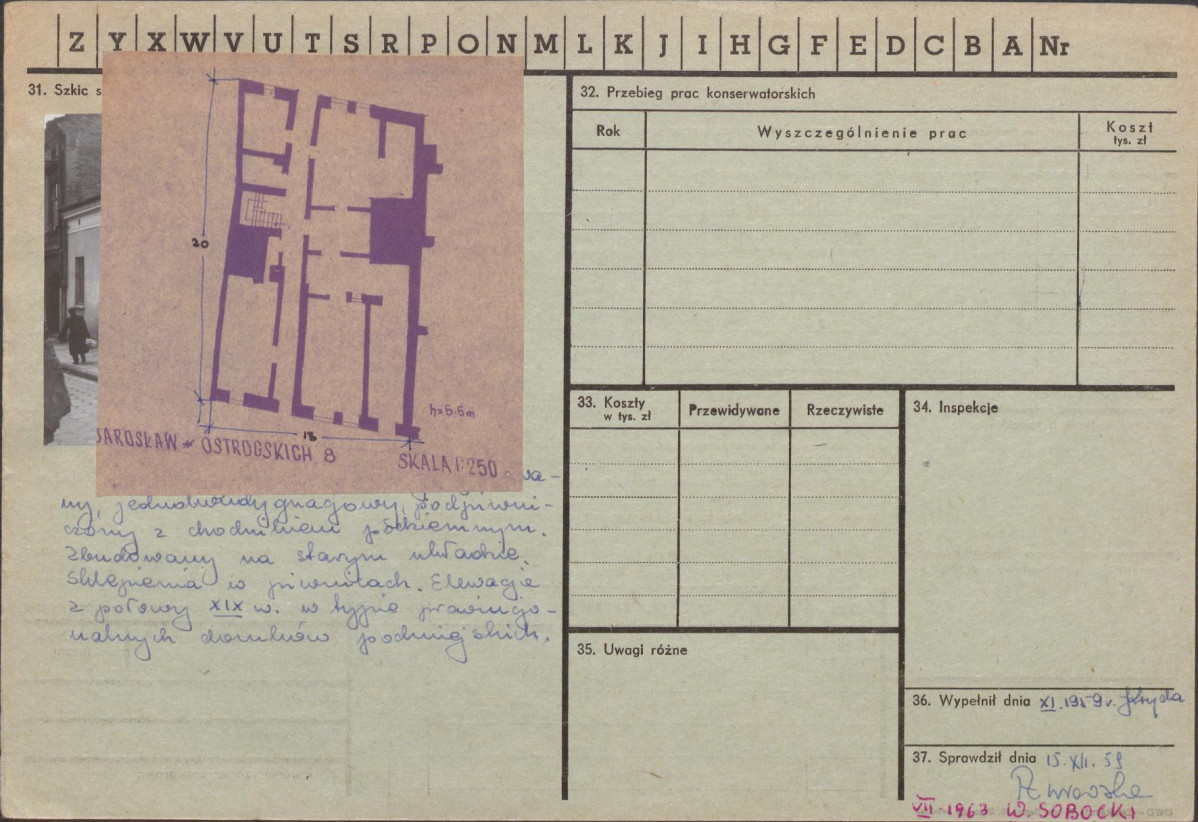 Z Y X W V U T S R P O N M L K J I H G F E D C B A Nr
31. Szkic s
20
h=6.6m
18
JAROSŁAW OSTROGSKICH 8 SKALA 1:250
wa-
ny, jednotraktygnagowy, podpiwni-
czony z chodnikiem podziemnym.
Zbudowany na starym układzie.
Sklepienia w piwnicach. Elewacje
z połowy XIX w. w typie prowincjo-
nalnych domków podmiejskich.
32. Przebieg prac konserwatorskich
Rok Wyszczególnienie prac Koszt
tys. zł
33. Koszty
w tys. zł
Przewidywane Rzeczywiste
34. Inspekcje
35. Uwagi różne
36. Wypełnił dnia XI.1959r.
37. Sprawdził dnia 15.XII.59
VII 1963 W. SOBOCKI